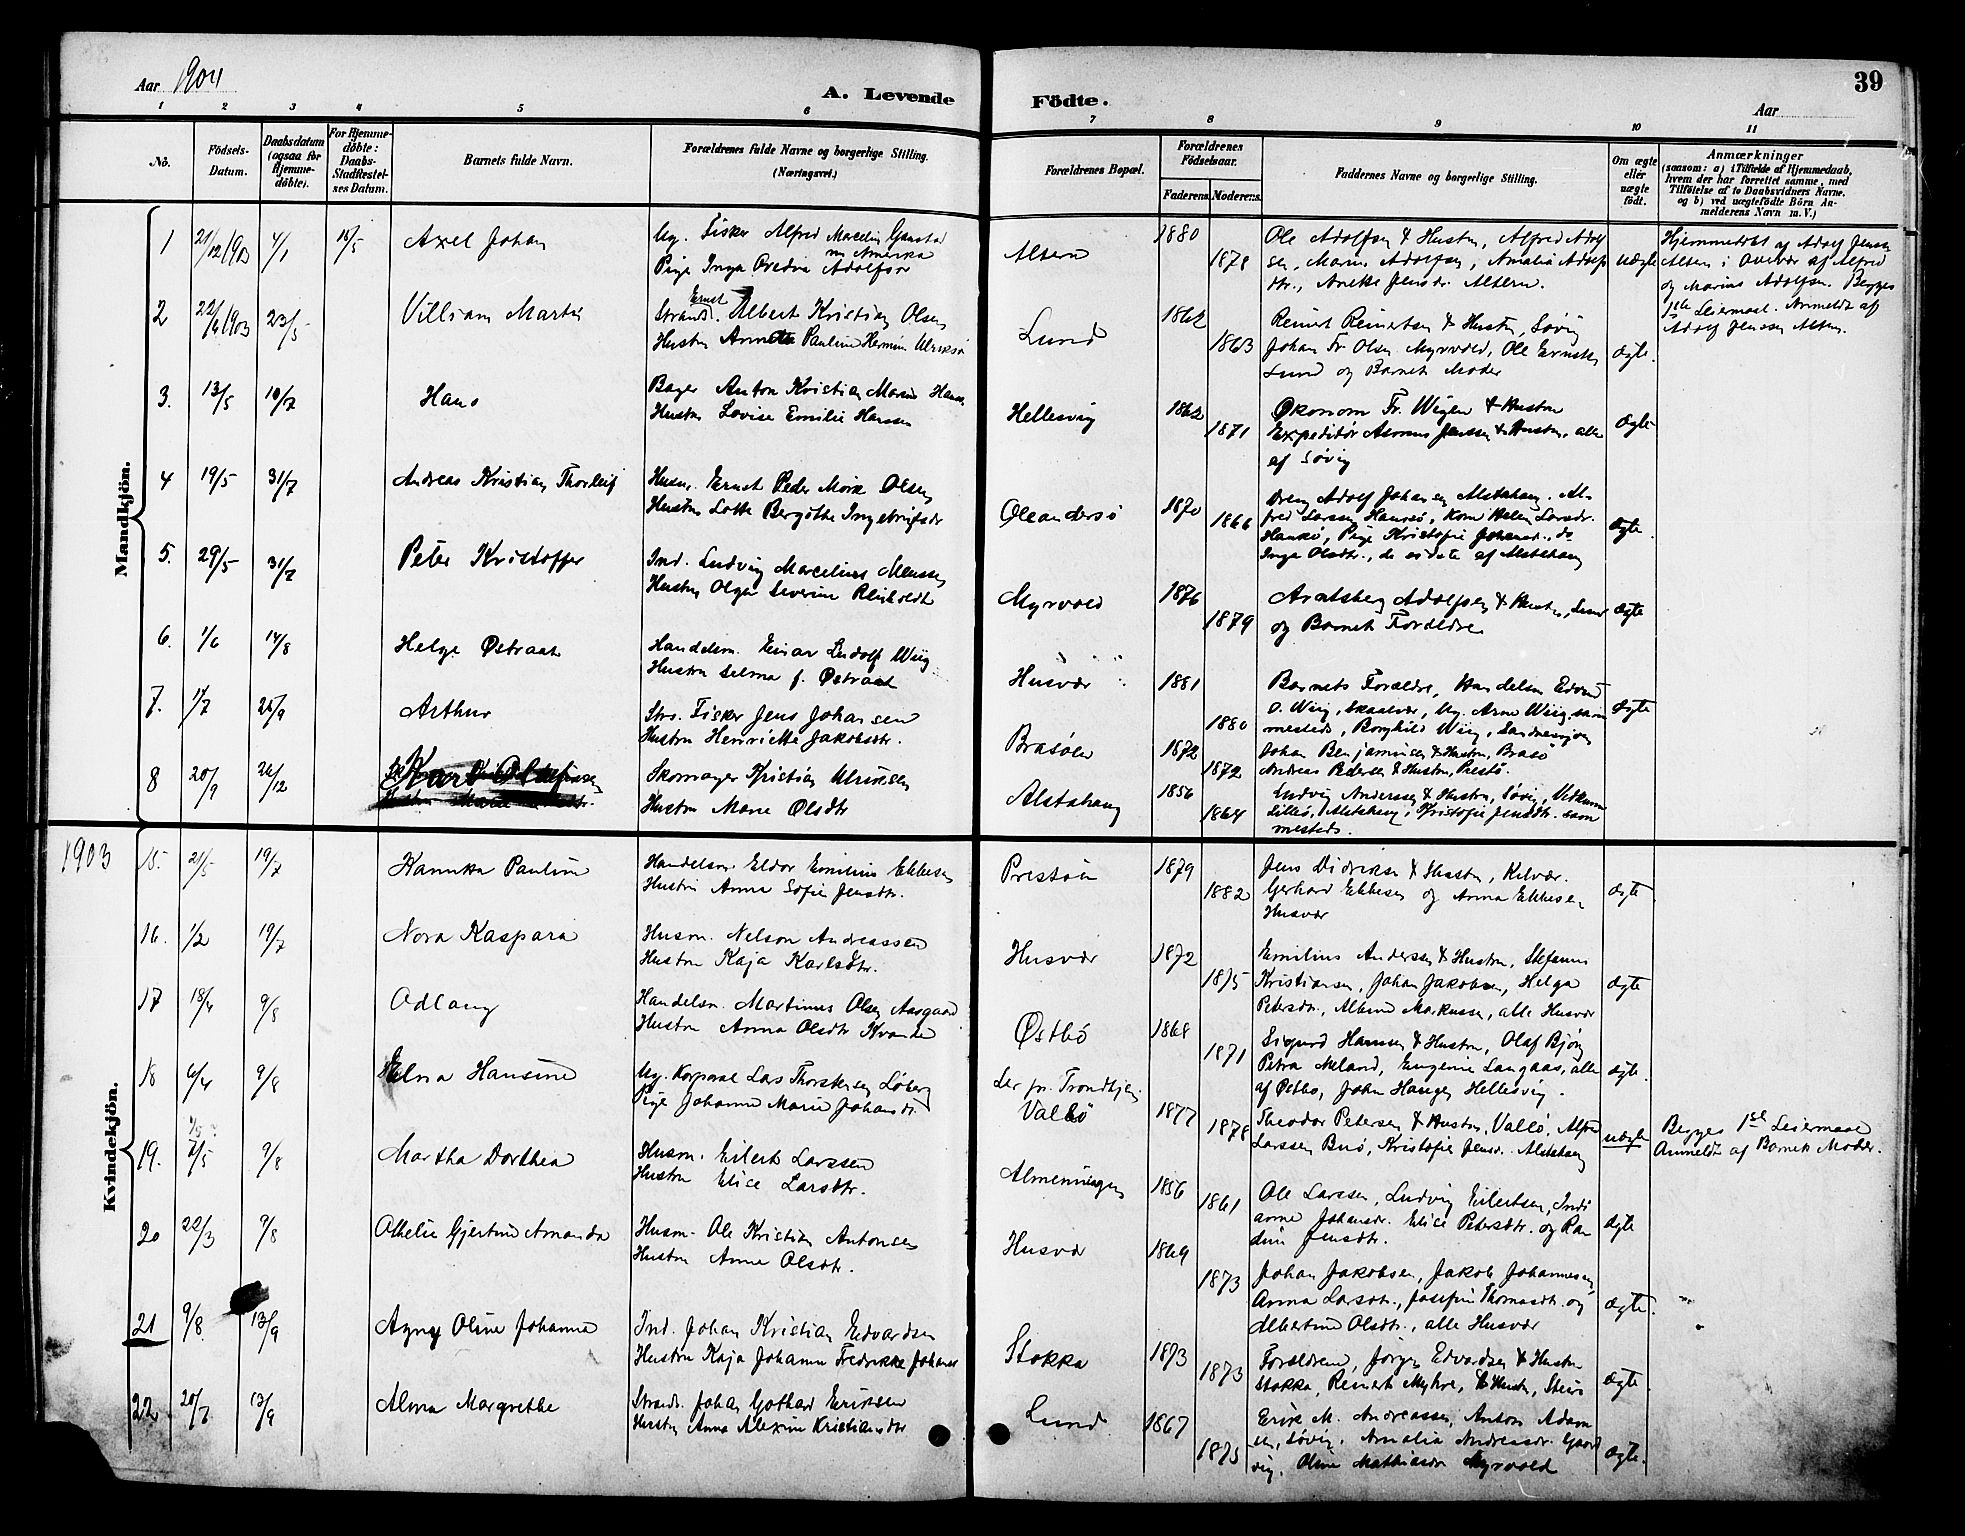 39
Aar 1904
A. Levende Födte.
Aar
1 2 3 4 5 6 7 8 9 10 11
No.
Födsels-Datum.
Daabsdatum (ogsaa for Hjemme-döbte).
For Hjemme-döbte: Daabs-Stadfæstel-ses Datum.
Barnets fulde Navn.
Forældrenes fulde Navne og borgerlige Stilling. (Næringsvei.)
Forældrenes Bopæl.
Forældrenes Födselsaar.
Faderens. Moderens.
Faddernes Navne og borgerlige Stilling.
Om ægte eller uægte födt.
Anmærkninger
(saasom: a) i Tilfælde af Hjemmedaab, hvem der har forrettet samme, med Tilföielse af to Daabsvidners Navne. og b) ved uægtefödte Börn An-melderens Navn m. V.)
Mandkjön.
1 21/12 1903 4/1 15/5 Axel Johan
Ug. Fisker Alfred Marcelin
Pige Inga Ovedia Adolfsdr
Altern 1880 1878
Ole Adolfsen & Hustru, Alfred Adolf
sen, Marius Adolfsen, Amalia Adolfs
dtr., Anette Jensdr. Altern.
uægte
Hjemmedöbt af Adolf Jensen
Altern i Overvær af Alfred
og Marius Adolfsen. Begges
1ste Leiermaal. Anmeldt af
Adolf Jensen Altern.
2 23/5 Villiam Martin
Strands. Ernst Albert Kristian Olsen
Hustru Annette Pauline Hermine Ulriksd
Lund 1862 1863
Reinert Reinertsen & Hustru, Søvig
Johan Fr. Olsen Myrvold, Ole Ernsts
Lund og Barnets Moder
ægte.
3. 13/5 10/7 Hans
Bager Anton Kristian Marius Hansen
Hustru Lovise Emilie Hanssen
Hellesvig 1862 1871
Økonom Fr. Wigen & Hustru
Expeditör Asmus Jenssen & Hustru, alle
af Søvig
ægte
4 19/5 31/7 Andreas Kristian Thorleif
Husm. Ernst Peder Mörk Olsen
Hustru Lotte Bergitte Ingebrigtsdr
Oleandersö 1870 1866
Dreng Adolf Johansen Alstahaug. Al-
fred Larssen Hansö, Kone Helen Larsdr.
Hansö, Pige Kristofie Johansdr., do
Inga Olsdtr., de sidste af Alstahaug
ægte
5. 29/5 31/7 Peter Kristoffer
Ind. Ludvig Marcelius
Hustru Olga Severine
Myrvold 1876 1879
Adolfsen & Hustru, Lund
og Barnets Forældre
ægte
6. 1/6 14/8 Helge Östraat
Handelsm. Einar Ludolf Wiig
Hustru Selma f. Östraat
Husvær 1881 1880
Barnets Forældre, Handelsm Edvard
O. Wiig, Skaalvær, Ug. Arne Wiig, sam
mesteds, Borghild Wiig, Sandnessjöen
ægte
7. 1/7 25/9 Arthur
Strs. Fisker Jens Johansen
Hustru Henriette Jakobsdtr.
Brasöen 1872 1872
Johan Benjaminsen & Hustru, Brasö
Andreas Pedersen & Hustru, Prestö.
8 20/9 26/12 Karl
Skomager Kristian Ulriksen
Hustru Marie Olsdtr
Alstahaug 1856 1864
Ludvig Anderssen & Hustru, Søvig,
Lillesö, Alstahaug, Kristofie Jensdtr. sam
mesteds.
1903
Kvindekjön.
15. 21/5 19/7 Kamilla Pauline
Handelsm. Eldor Emilius Ebbesen
Hustru Anna Sofie Jensdtr.
Prestöen 1879 1882
Jens Didriksen & Hustru, Kilvær.
Gerhard Ebbesen og Anna Ebbesen
Husvær
ægte.
16. 1/2 19/7 Nora Kaspara
Husm. Nelson Andreassen
Hustru Kaja Karlsdtr.
Husvær 1872 1875
Emilius Anderssen & Hustru, Stefanus
Kristiansen, Johan Jakobsen, Helga
Petersdtr., Albine Markussen, alle Husvær
ægte
17 18/4 9/8 Adlaug
Handelsm. Martinus Olsen Aasgaard
Hustru Anna Olsdtr Kvande
Østbö 1868 1871
Sigurd Hansen & Hustru, Olaf Björu
Petra Meland, Eugenie Langaas, alle
af Østbö, John Haugen Hellesvig.
ægte.
18 6/4 9/8 Elna Hansine
Ug. Korporal Lars Thorstensen Löberg
Pige Johanna Marie Johansdt.
Ler pr. Trondhjem
Vallö 1877 1878
Theodor Petersen & Hustru, Vallö, Alfred
Larssen Buö, Kristofie Jensdr. Alstahaug
uægte
Begges 1ste Leiermaal
Anmeldt af Barnets Moder.
19. 7/5 9/8 Martha Dorthea
Husm. Eilert Larssen
Hustru Elice Larsdtr.
Almenningen 1856 1861
Ole Larssen, Ludvig Eilertsen, Indi
anne Johansdr. Elice Petersdtr. og Ran
dine Jensdtr.
ægte
20 22/3 9/8 Othelie Gjertine Amanda
Husm. Ole Kristian Antonsen
Hustru Anne Olsdtr.
Husvær 1869 1873
Johan Jakobsen, Jakob Johannesen
Anna Larsdtr., Josefine Thomasdtr. og
Albertine Olsdtr., alle Husvær
ægte.
21 9/8 13/9 Agnes Oline Johanna
Ind. Johan Kristian Edvardsen
Hustru Kaja Johanna Fredrikke Johans
Stokka 1873 1873
Forældrene, Jörgen Edvardsen & Hustru
Stokka, Reinert Myhre, & Hustru,
ægte.
22. 20/7 13/9 Alma Margrethe
Strands. Johan Gothard Eriksen
Hustru Anna Alexine Kristiansdtr
Lund 1867 1875
Erik M. Andreassen, Anton Adam
sen, Søvig, Amalia Andreasdr.
Oline Mathiasdr Myrvold
ægte.